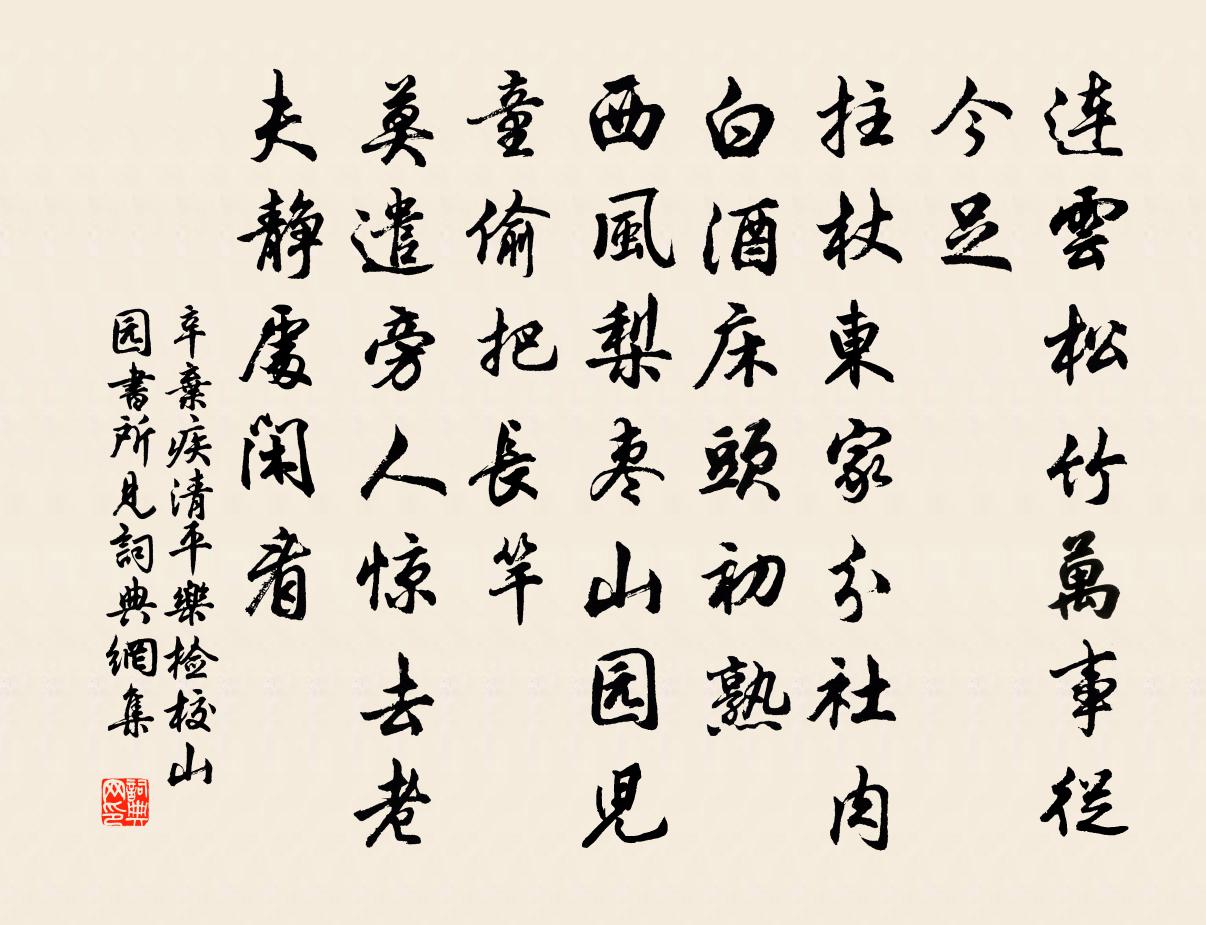 连雲松竹萬事從
今足
拄杖東家分社肉
白酒床頭初熟
西風梨枣山园児
童偷把長竿
莫遣旁人惊去老
夫静處闲看
辛棄疾清平樂检校山
园書所見詞典網集
詞典
网印